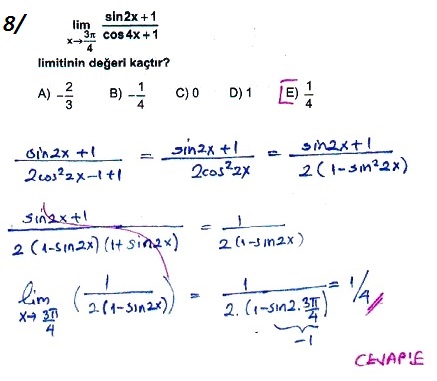 8/ lim x→3π/4 (sin2x + 1)/(cos4x + 1)
limitinin değeri kaçtır?
A) -2/3 B) -1/4 C) 0 D) 1 E) 1/4
(sin2x + 1)/(2cos²2x - 1 + 1) = (sin2x + 1)/(2cos²2x) = (sin2x + 1)/(2(1 - sin²2x))
(sin2x + 1)/(2(1 - sin2x)(1 + sin2x)) = 1/(2(1 - sin2x))
lim x→3π/4 (1/(2(1 - sin2x))) = 1/(2.(1 - sin2.3π/4)) = 1/4
-1
CEVAP:E